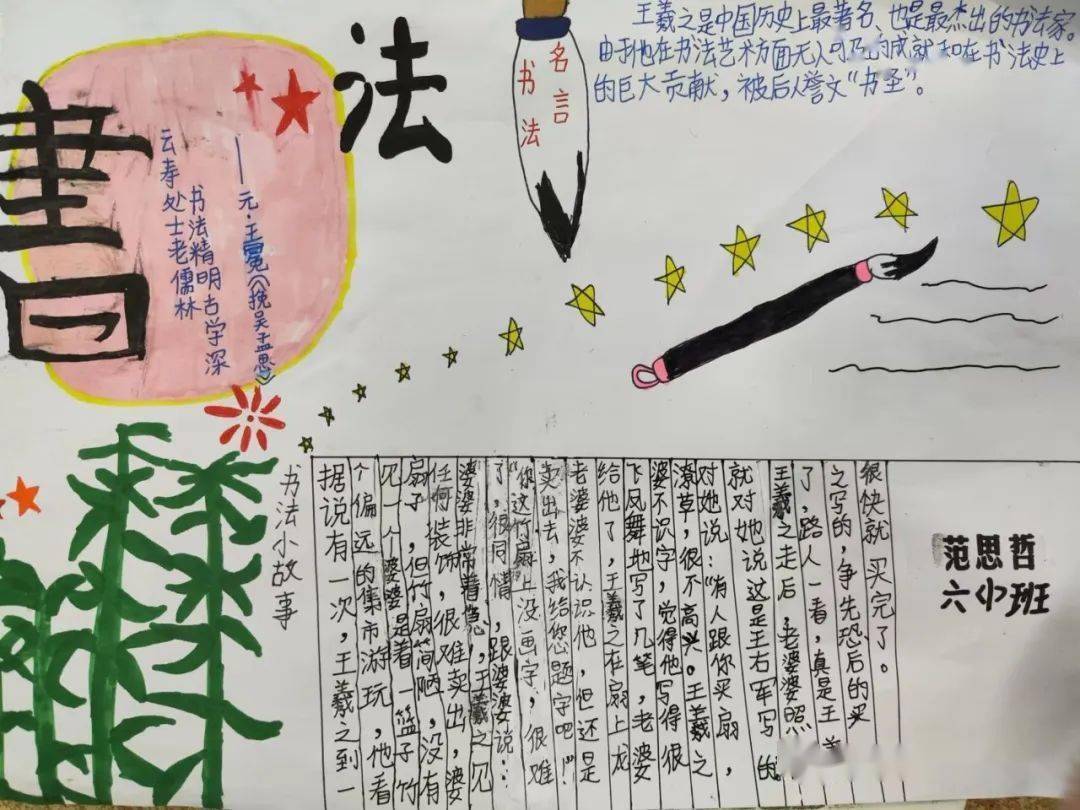 書法
书法
名言
王羲之是中国历史上最著名、也是最杰出的书法家。
由于他在书法艺术方面无人可及的成就和在书法史上
的巨大贡献，被后人誉文“书圣”。
云寿处士老儒林
书法精明古学深
——元·王冕《挽吴孟思》
书法小故事
据说有一次，王羲之到一
个偏远的集市游玩，他看
见一个婆婆是着一篮子竹
扇子，但竹扇简陋，没有
任何装饰，很难卖出，婆
婆婆非常着急，王羲之见
了，很同情，跟婆婆说：
“你这竹扇上没画字，很难
卖出去，我给您题字吧！”
老婆婆不认识他，但还是
给他了，王羲之在扇上龙
飞凤舞地写了几笔，老婆
婆不识字，觉得他写得很
潦草，很不高兴。王羲之
对她说：“有人跟你买扇，
就对她说这是王右军写的
王羲之走后，老婆婆照
了，路人一看，真是王羲
之写的，争先恐后的买
很快就买完了。
范思哲
六小班